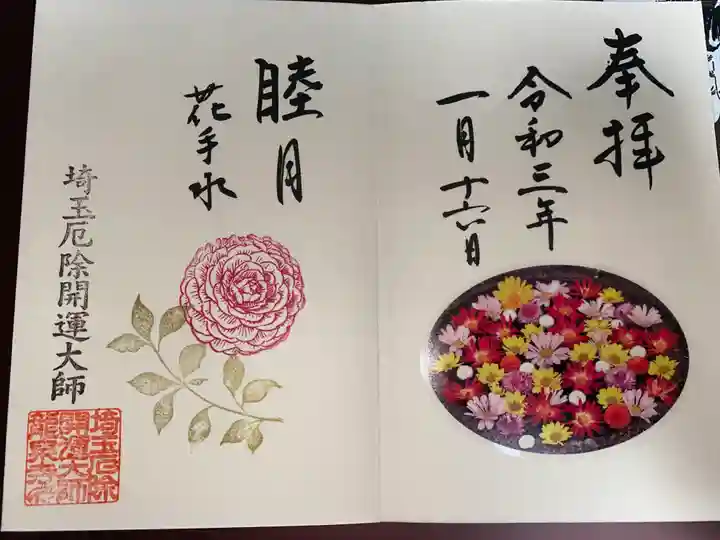 奉拝
令和三年
一月十六日
睦月
花手水
埼玉厄除開運大師
埼玉厄除
開運大師
龍泉寺